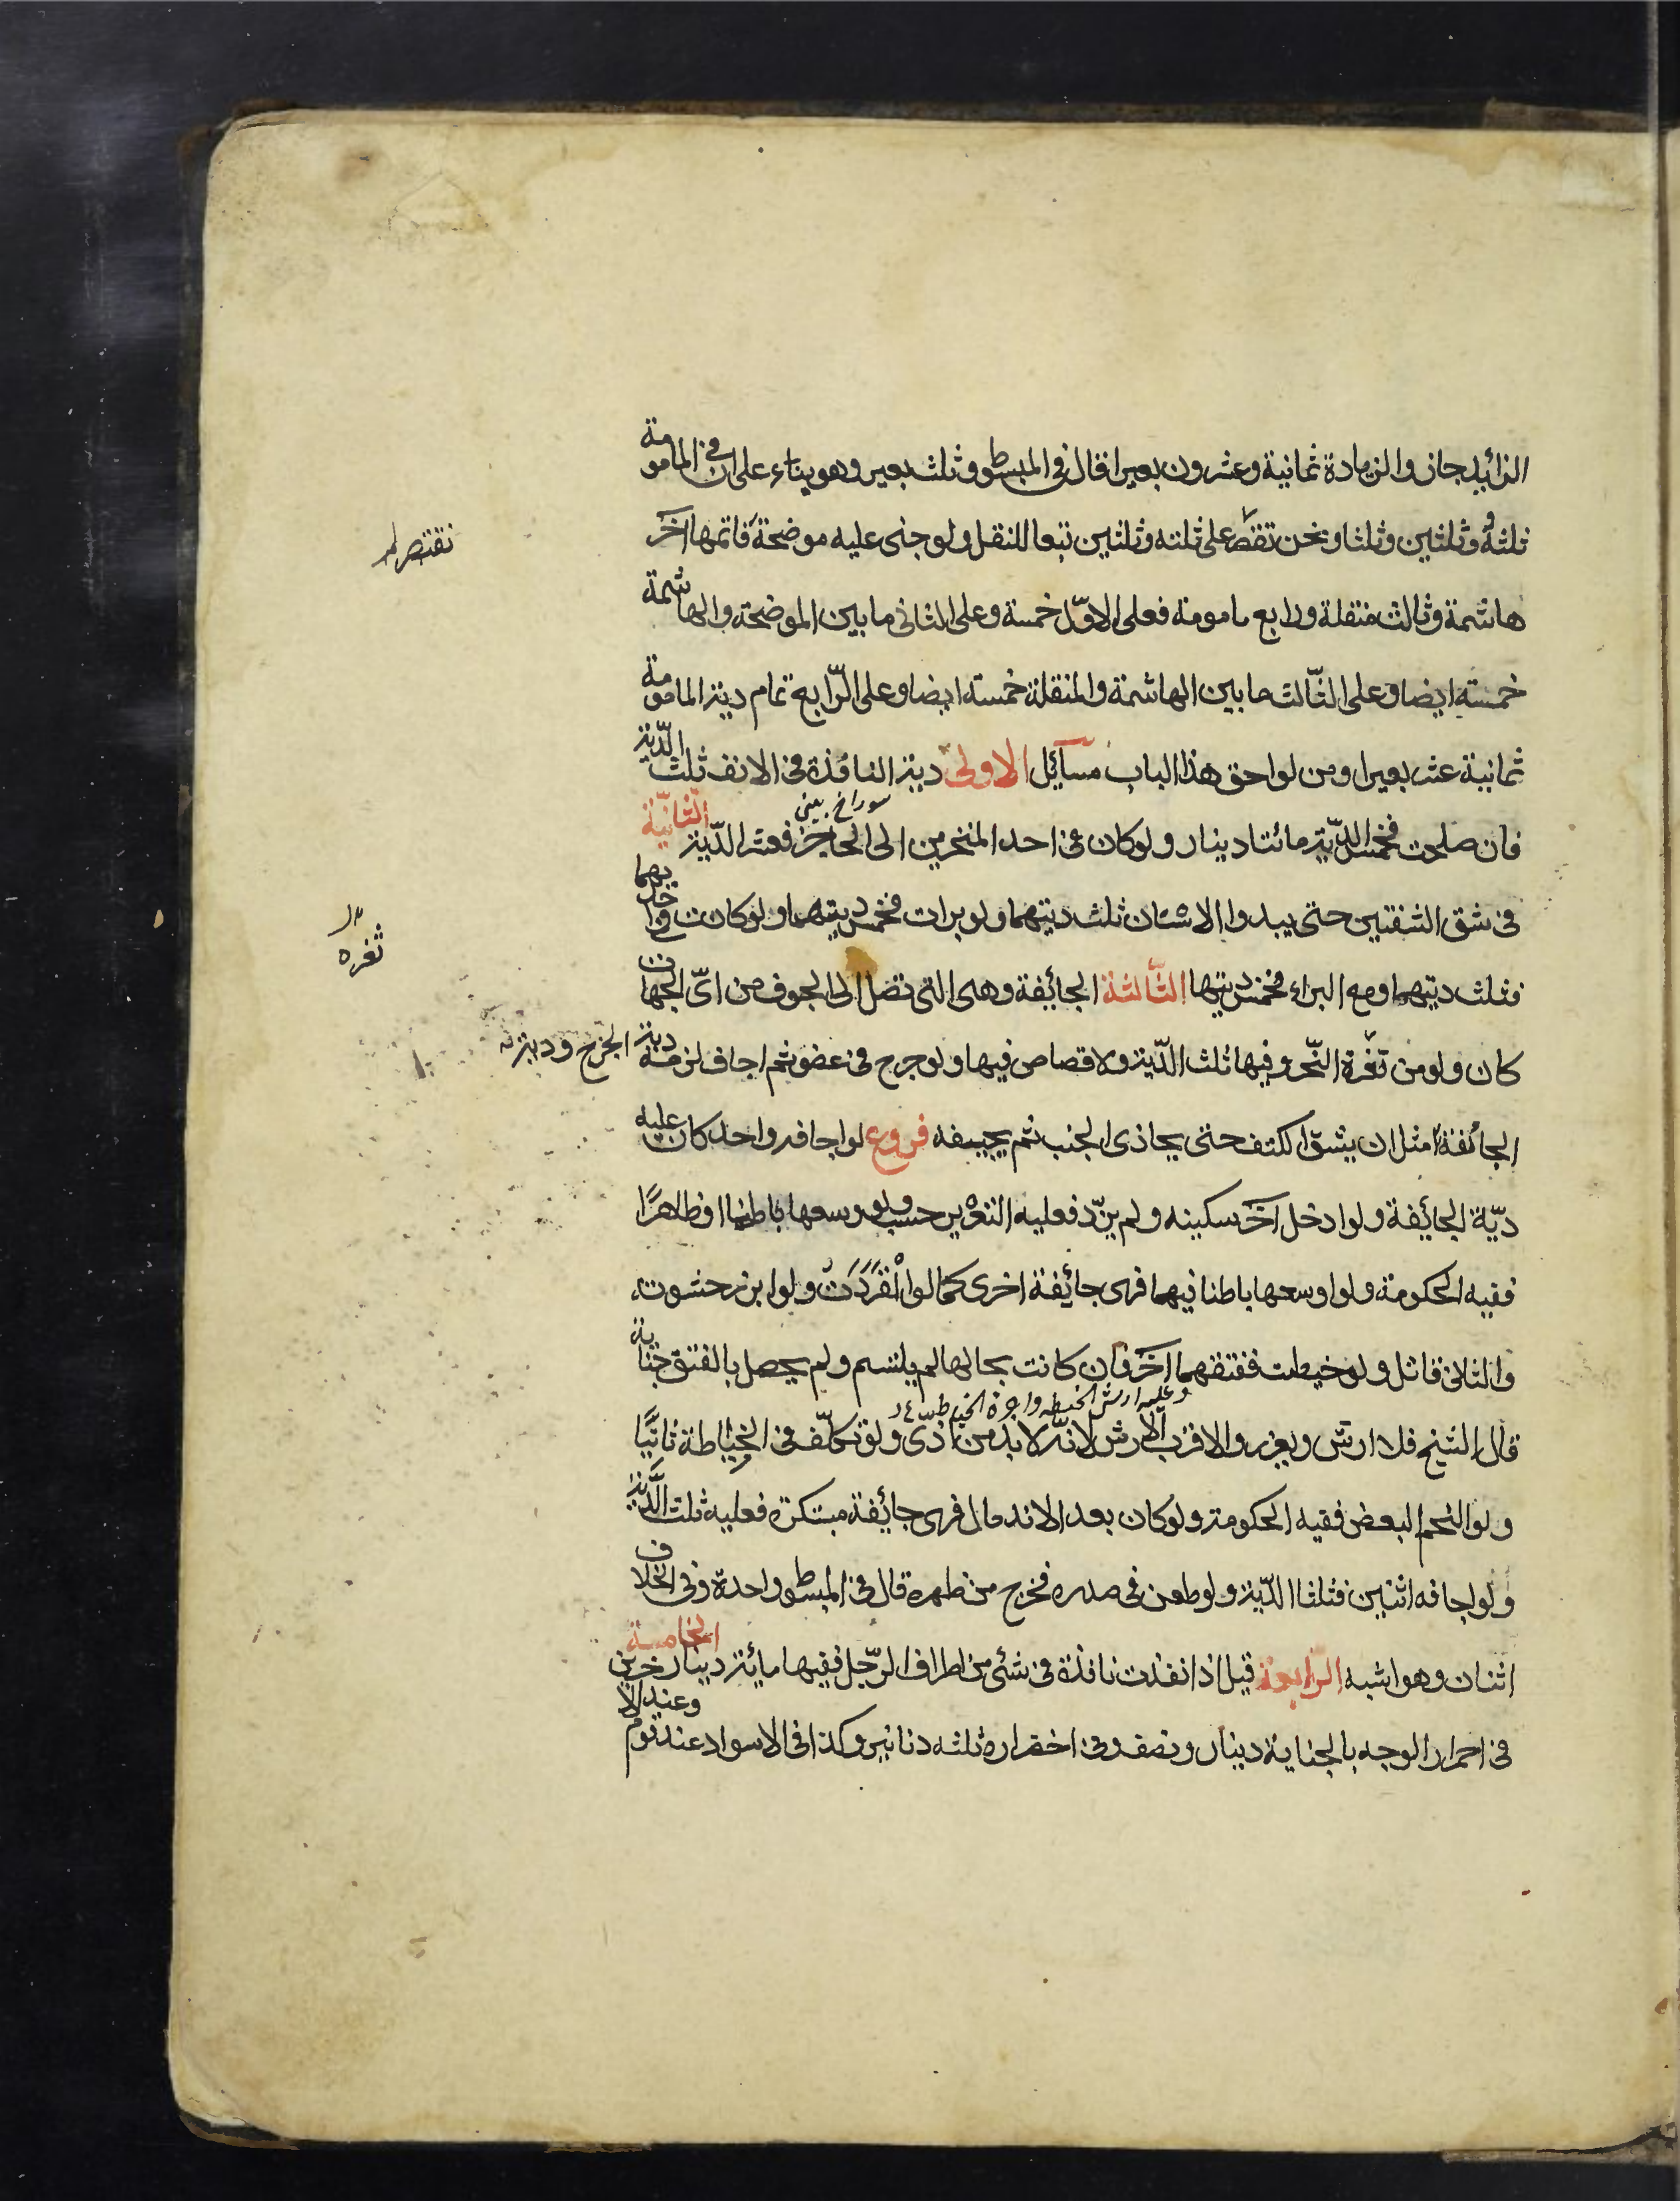 الزائد جاز والزيادة ثمانية وعشرون بعيرا قال في المبسوط وثلث بعير وهو بناء على ان في المامومة
ثلثة وثلثين وثلثا ونحن نقتصر على ثلثه وثلثين تبعا للنقل ولو جنى عليه موضحة فاتمها آخر
نقتصر
هاشمة وثالث منقلة ورابع مامومة فعلى الاوّل خمسة وعلى الثانى ما بين الموضحة والهاشمة
خمسة ايضا وعلى الثّالث ما بين الهاشمة والمنقلة خمسة ايضا وعلى الرّابع تمام دية المامومة
ثمانية عشر بعيرا ومن لواحق هذا الباب مسآئل الاولى دية النافذة فى الانف ثلث الدّية
سوراخ بينى
فان صلحت فخمس الدّية مائتا دينار ولو كان فى احد المنخرين الى الحاجز فعشر الدّية الثّانيّة
فى شق الشفتين حتى يبدوا الاسنان ثلث ديتهما ولو برات فخمس ديتهما ولو كانت في احديهما
ثغره
فثلث ديتهما ومع البراء فخمس ديتها الثّالثة الجائفة وهى التى تصل الى الجوف من اىّ الجهات
كان ولو من ثغرة النّحر وفيها ثلث الدّية ولا قصاص فيها ولو جرح فى عضو ثم اجاف لزمه دية الجرح ودية
الجائفة مثل ان يشقّ الكتف حتى يحاذى الجنب ثم يجيفه فروع لو اجافه واحد كان عليه
ديّة الجائفة ولو ادخل آخر سكينه ولم يزّد فعليه التعزير حسب ولو وسعها باطنا او ظاهرًا
ففيه الحكومة ولو اوسعها باطنا فيهما فهى جائفة اخرى كما لو انْفَرَدَتْ ولو ابرز حشوته
والثانى قاتل ولو خيطت ففتقهما آخر فان كانت بحالها لم يلتئم ولم يحصل بالفتق جناية
وعليه ارش الخيطه واجرة الخياط
قال الشيخ فلا ارش ويعزر والاقرب الارش لانّه لا بد من اذّى ولو تكلّف فى الخياطة ثانيًا
ولو التحم البعض ففيه الحكومة ولو كان بعد الاندمال فهى جائفة مبتكرة فعليه ثلث الدّية
ولو اجافه اثنين فثلثا الدّية ولو طعن فى صدره فخرج من ظهره قال فى المبسوط واحدة وفى الخلاف
اثنان وهو اشبه الرّابعة قيل اذا نفذت نافذة فى شئى من اطراف الرّجل ففيها مائة دينار الخامسة
فى احمرار الوجه بالجناية دينار ونصف وفى اخضراره ثلثه دنانير وكذا فى الاسواد عند قوم وعند الآخرين